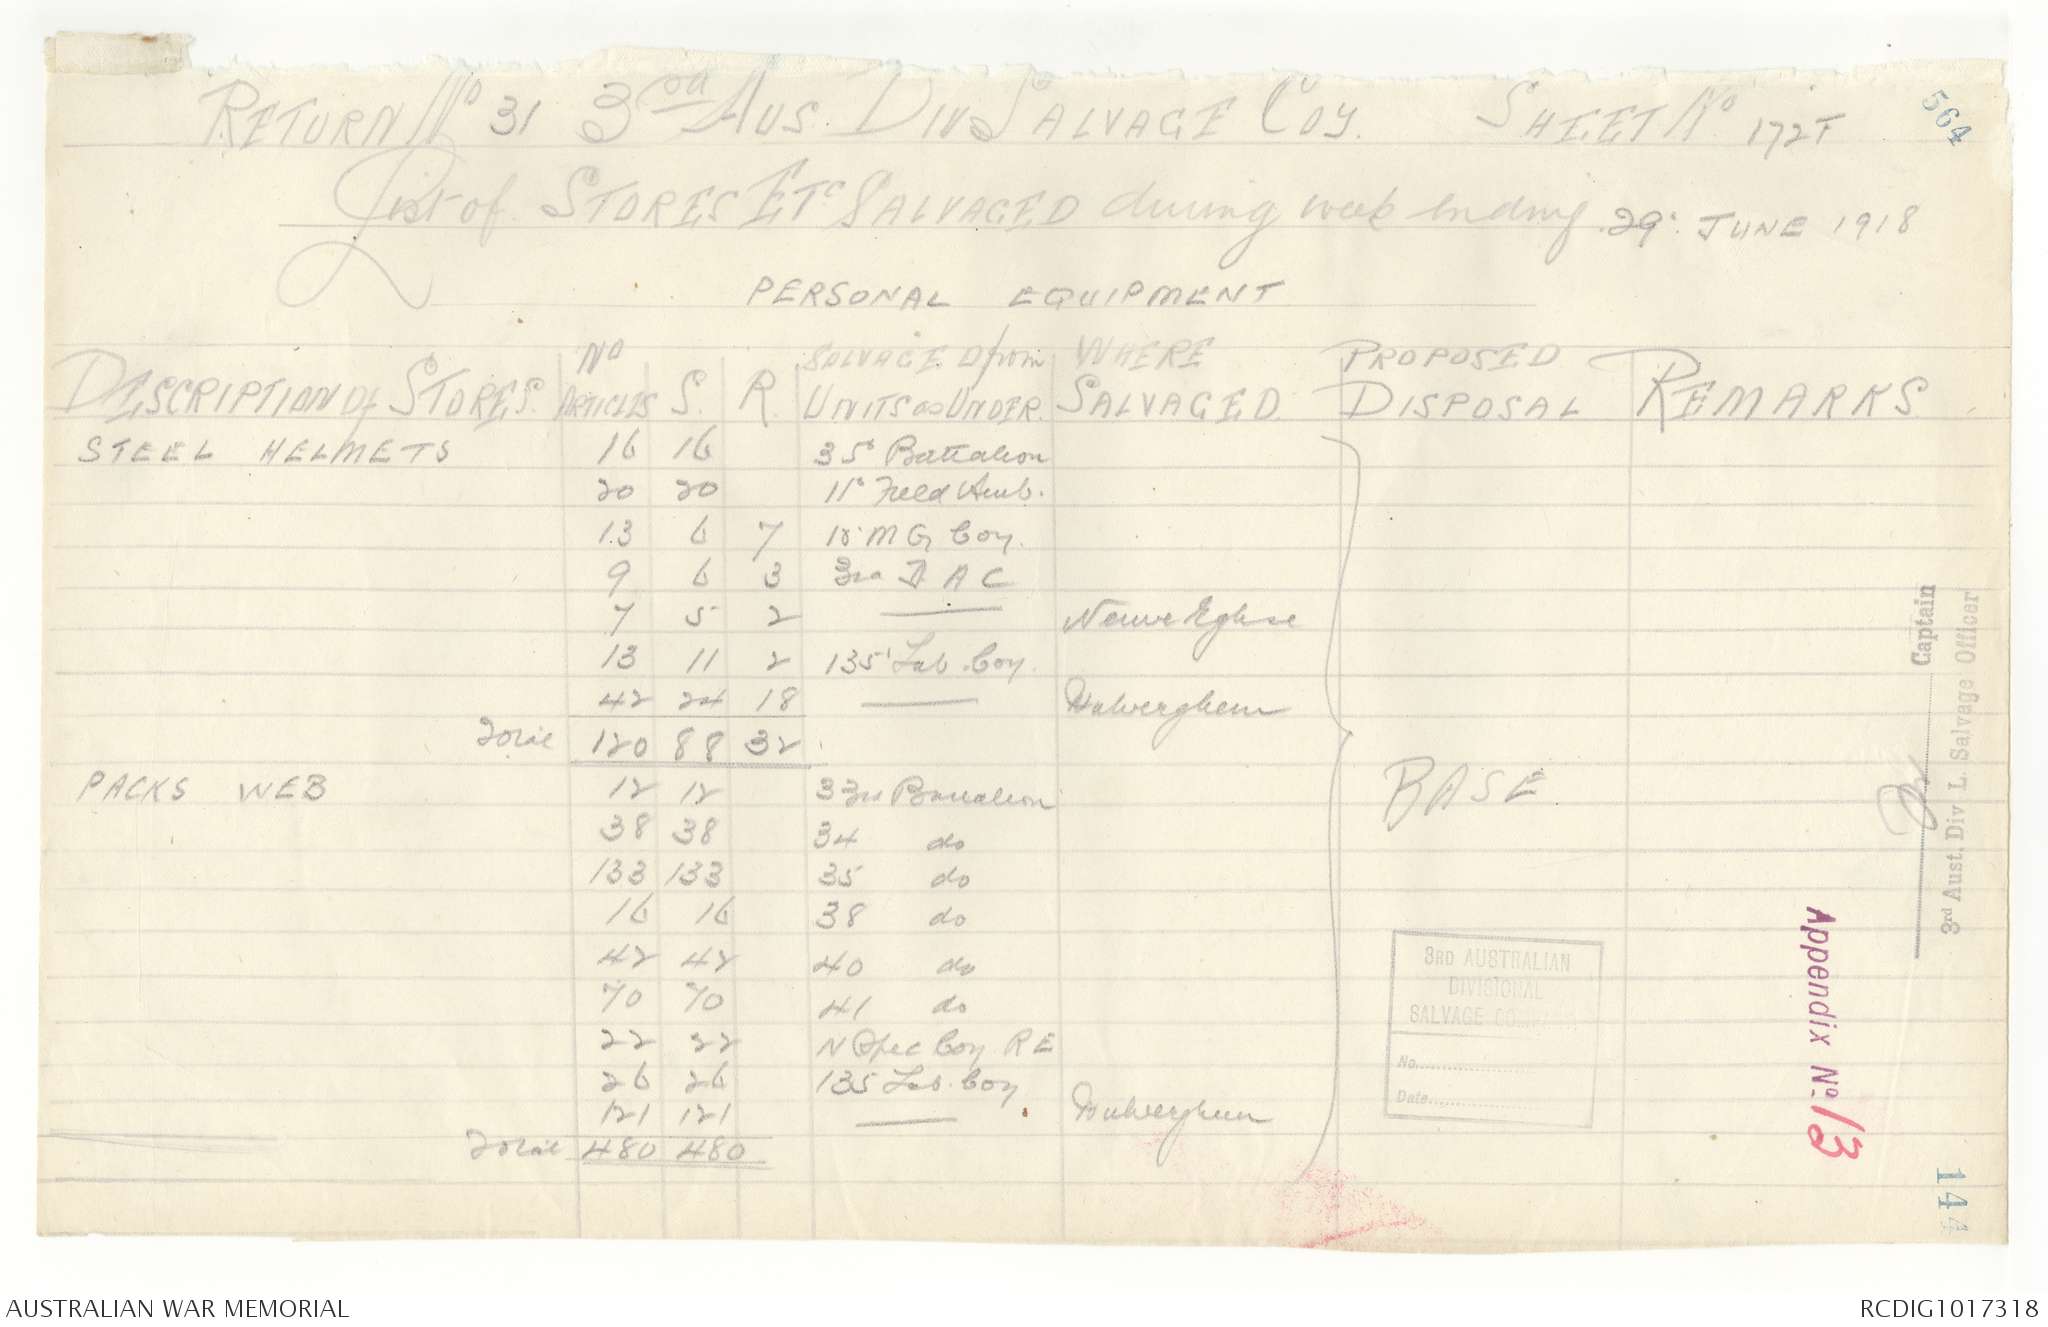 564
RETURN No 31 3rd AUS. DIV SALVAGE COY. SHEET No. 172T
List of STORES ETC SALVAGED during week ending 29. JUNE 1918
PERSONAL EQUIPMENT
DESCRIPTION of STORES. No ARTICLES S. R. SALVAGED from UNITS as UNDER. WHERE SALVAGED PROPOSED DISPOSAL REMARKS
STEEL HELMETS 16 16 35' Battalion
20 20 11' Field Amb.
13 6 7 MG Coy.
9 6 3 3rd D A C
7 5 2 —— Neuve Eglise
13 11 2 135' Lab. Coy.
42 24 18 —— Wulverghem
Total 120 88 32
PACKS WEB 12 12 33rd Battalion
BASE
38 38 34 do
133 133 35 do
16 16 38 do
42 42 40 do
70 70 41 do
22 22 N Spec Coy R E
26 26 135 Lab. Coy
121 121 —— Wulverghem
Total 480 480
3RD AUSTRALIAN
DIVISIONAL
SALVAGE COMPANY
No.
Date
Captain
3rd Aust. Div L. Salvage Officer
Appendix No. 13
144
AUSTRALIAN WAR MEMORIAL RCDIG1017318